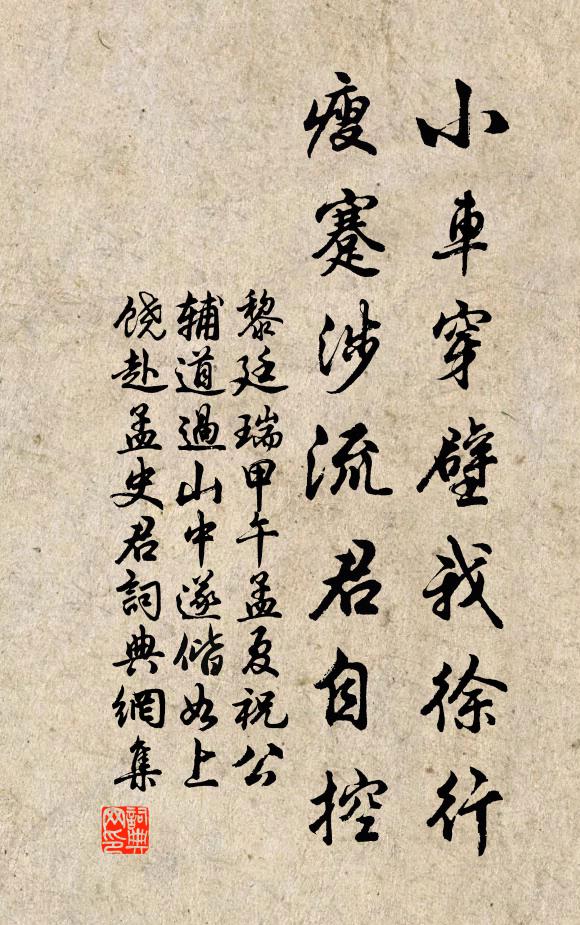 小車穿壁我徐行
瘦蹇涉流君自控
黎廷瑞甲午孟夏祝公
輔道過山中遂偕如上
饒赴孟史君詞典網集
詞典网印